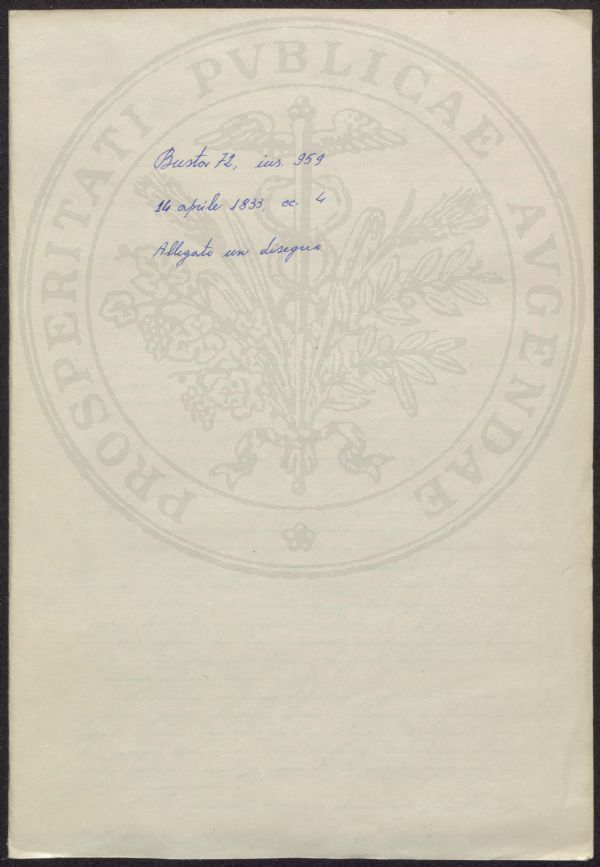 PROSPERITATI PVBLICAE AVGENDAE
Busta 72, ins. 959
14 aprile 1833, cc. 4
Allegato un disegno